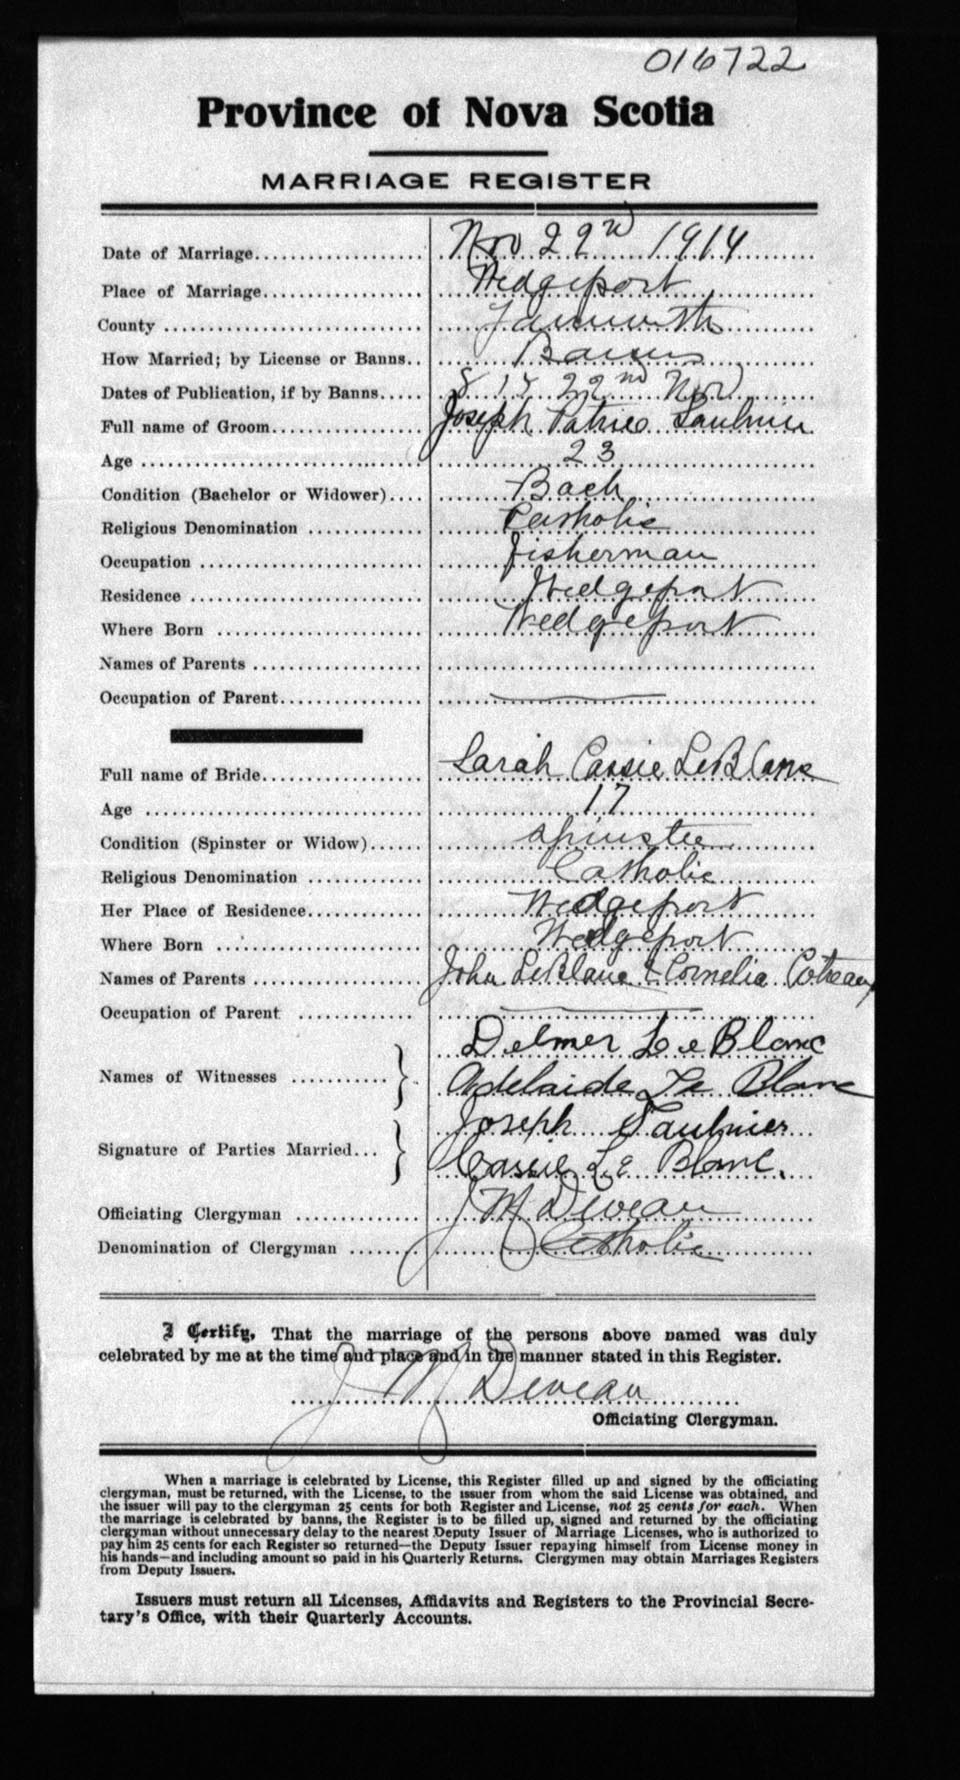 016722
Province of Nova Scotia
MARRIAGE REGISTER
Date of Marriage.................... Nov 22nd 1914
Place of Marriage.................... Wedgeport
County .................... Yarmouth
How Married; by License or Banns.. Banns
Dates of Publication, if by Banns..... 8 15 22nd Nov
Full name of Groom.................... Joseph Patrice Saulnier
Age .................... 23
Condition (Bachelor or Widower).... Bach
Religious Denomination .................... Catholic
Occupation .................... fisherman
Residence .................... Wedgeport
Where Born .................... Wedgeport
Names of Parents ....................
Occupation of Parent....................
Full name of Bride.................... Sarah Cassie LeBlanc
Age .................... 17
Condition (Spinster or Widow)...... spinster
Religious Denomination .................... Catholic
Her Place of Residence.................... Wedgeport
Where Born .................... Wedgeport
Names of Parents .................... John LeBlanc & Cornelia Cotreau
Occupation of Parent ....................
Delmer Le Blanc
Names of Witnesses ........... } Adelaide Le Blanc
Joseph Saulnier
Signature of Parties Married... } Cassie Le Blanc.
Officiating Clergyman .................... J M Deveau
Denomination of Clergyman .......... Catholic
I Certify, That the marriage of the persons above named was duly
celebrated by me at the time and place and in the manner stated in this Register.
J M Deveau
Officiating Clergyman.
When a marriage is celebrated by License, this Register filled up and signed by the officiating
clergyman, must be returned, with the License, to the issuer from whom the said License was obtained, and
the issuer will pay to the clergyman 25 cents for both Register and License, not 25 cents for each. When
the marriage is celebrated by banns, the Register is to be filled up, signed and returned by the officiating
clergyman without unnecessary delay to the nearest Deputy Issuer of Marriage Licenses, who is authorized to
pay him 25 cents for each Register so returned—the Deputy Issuer repaying himself from License money in
his hands—and including amount so paid in his Quarterly Returns. Clergymen may obtain Marriages Registers
from Deputy Issuers.
Issuers must return all Licenses, Affidavits and Registers to the Provincial Secre-
tary's Office, with their Quarterly Accounts.